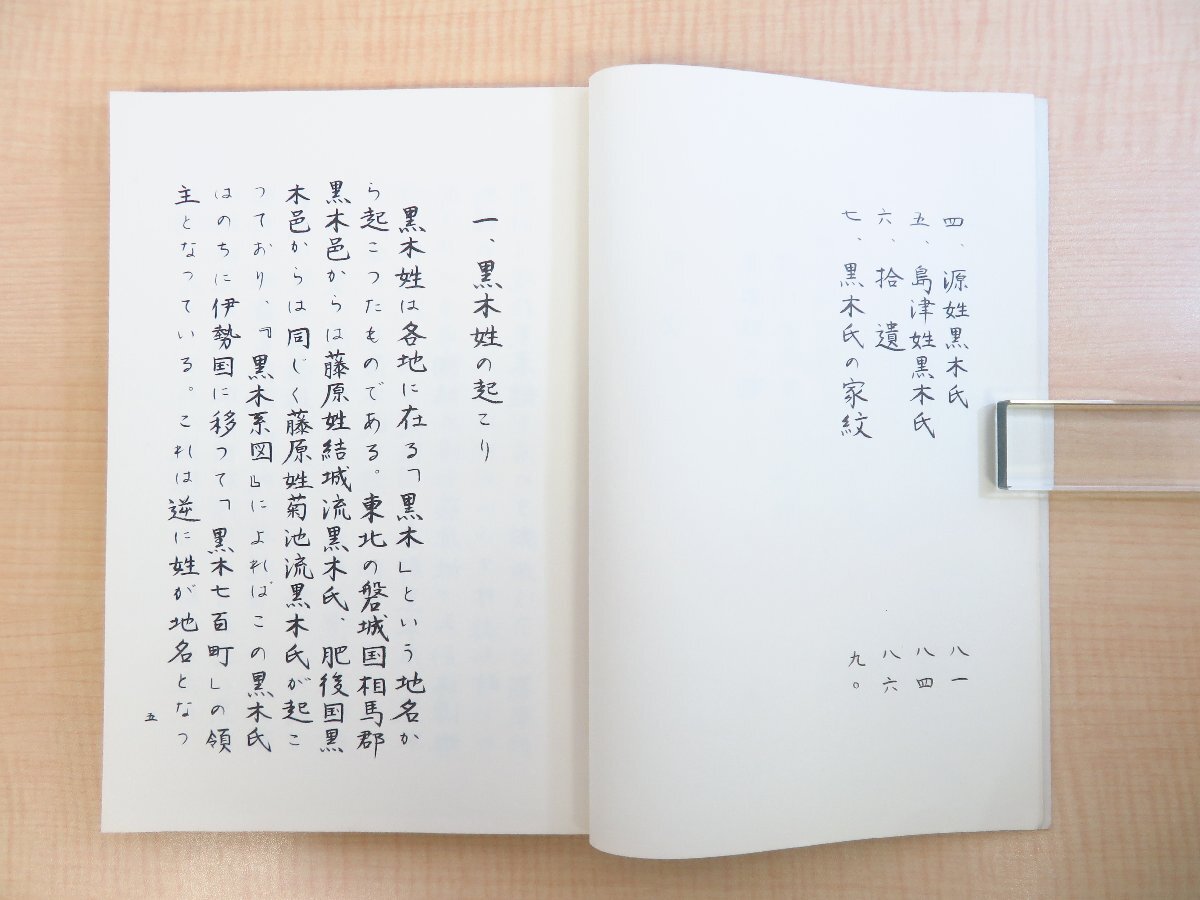 四、源姓黒木氏 八一
五、島津姓黒木氏 八四
六、拾遺 八六
七、黒木氏の家紋 九〇
一、黒木姓の起こり
黒木姓は各地に在る「黒木」という地名か
ら起こつたものである。東北の磐城国相馬郡
黒木邑からは藤原姓結城流黒木氏、肥後国黒
木邑からは同じく藤原姓菊池流黒木氏が起こ
つており、『黒木系図』によればこの黒木氏
はのちに伊勢国に移つて「黒木七百町」の領
主となつている。これは逆に姓が地名となつ
五